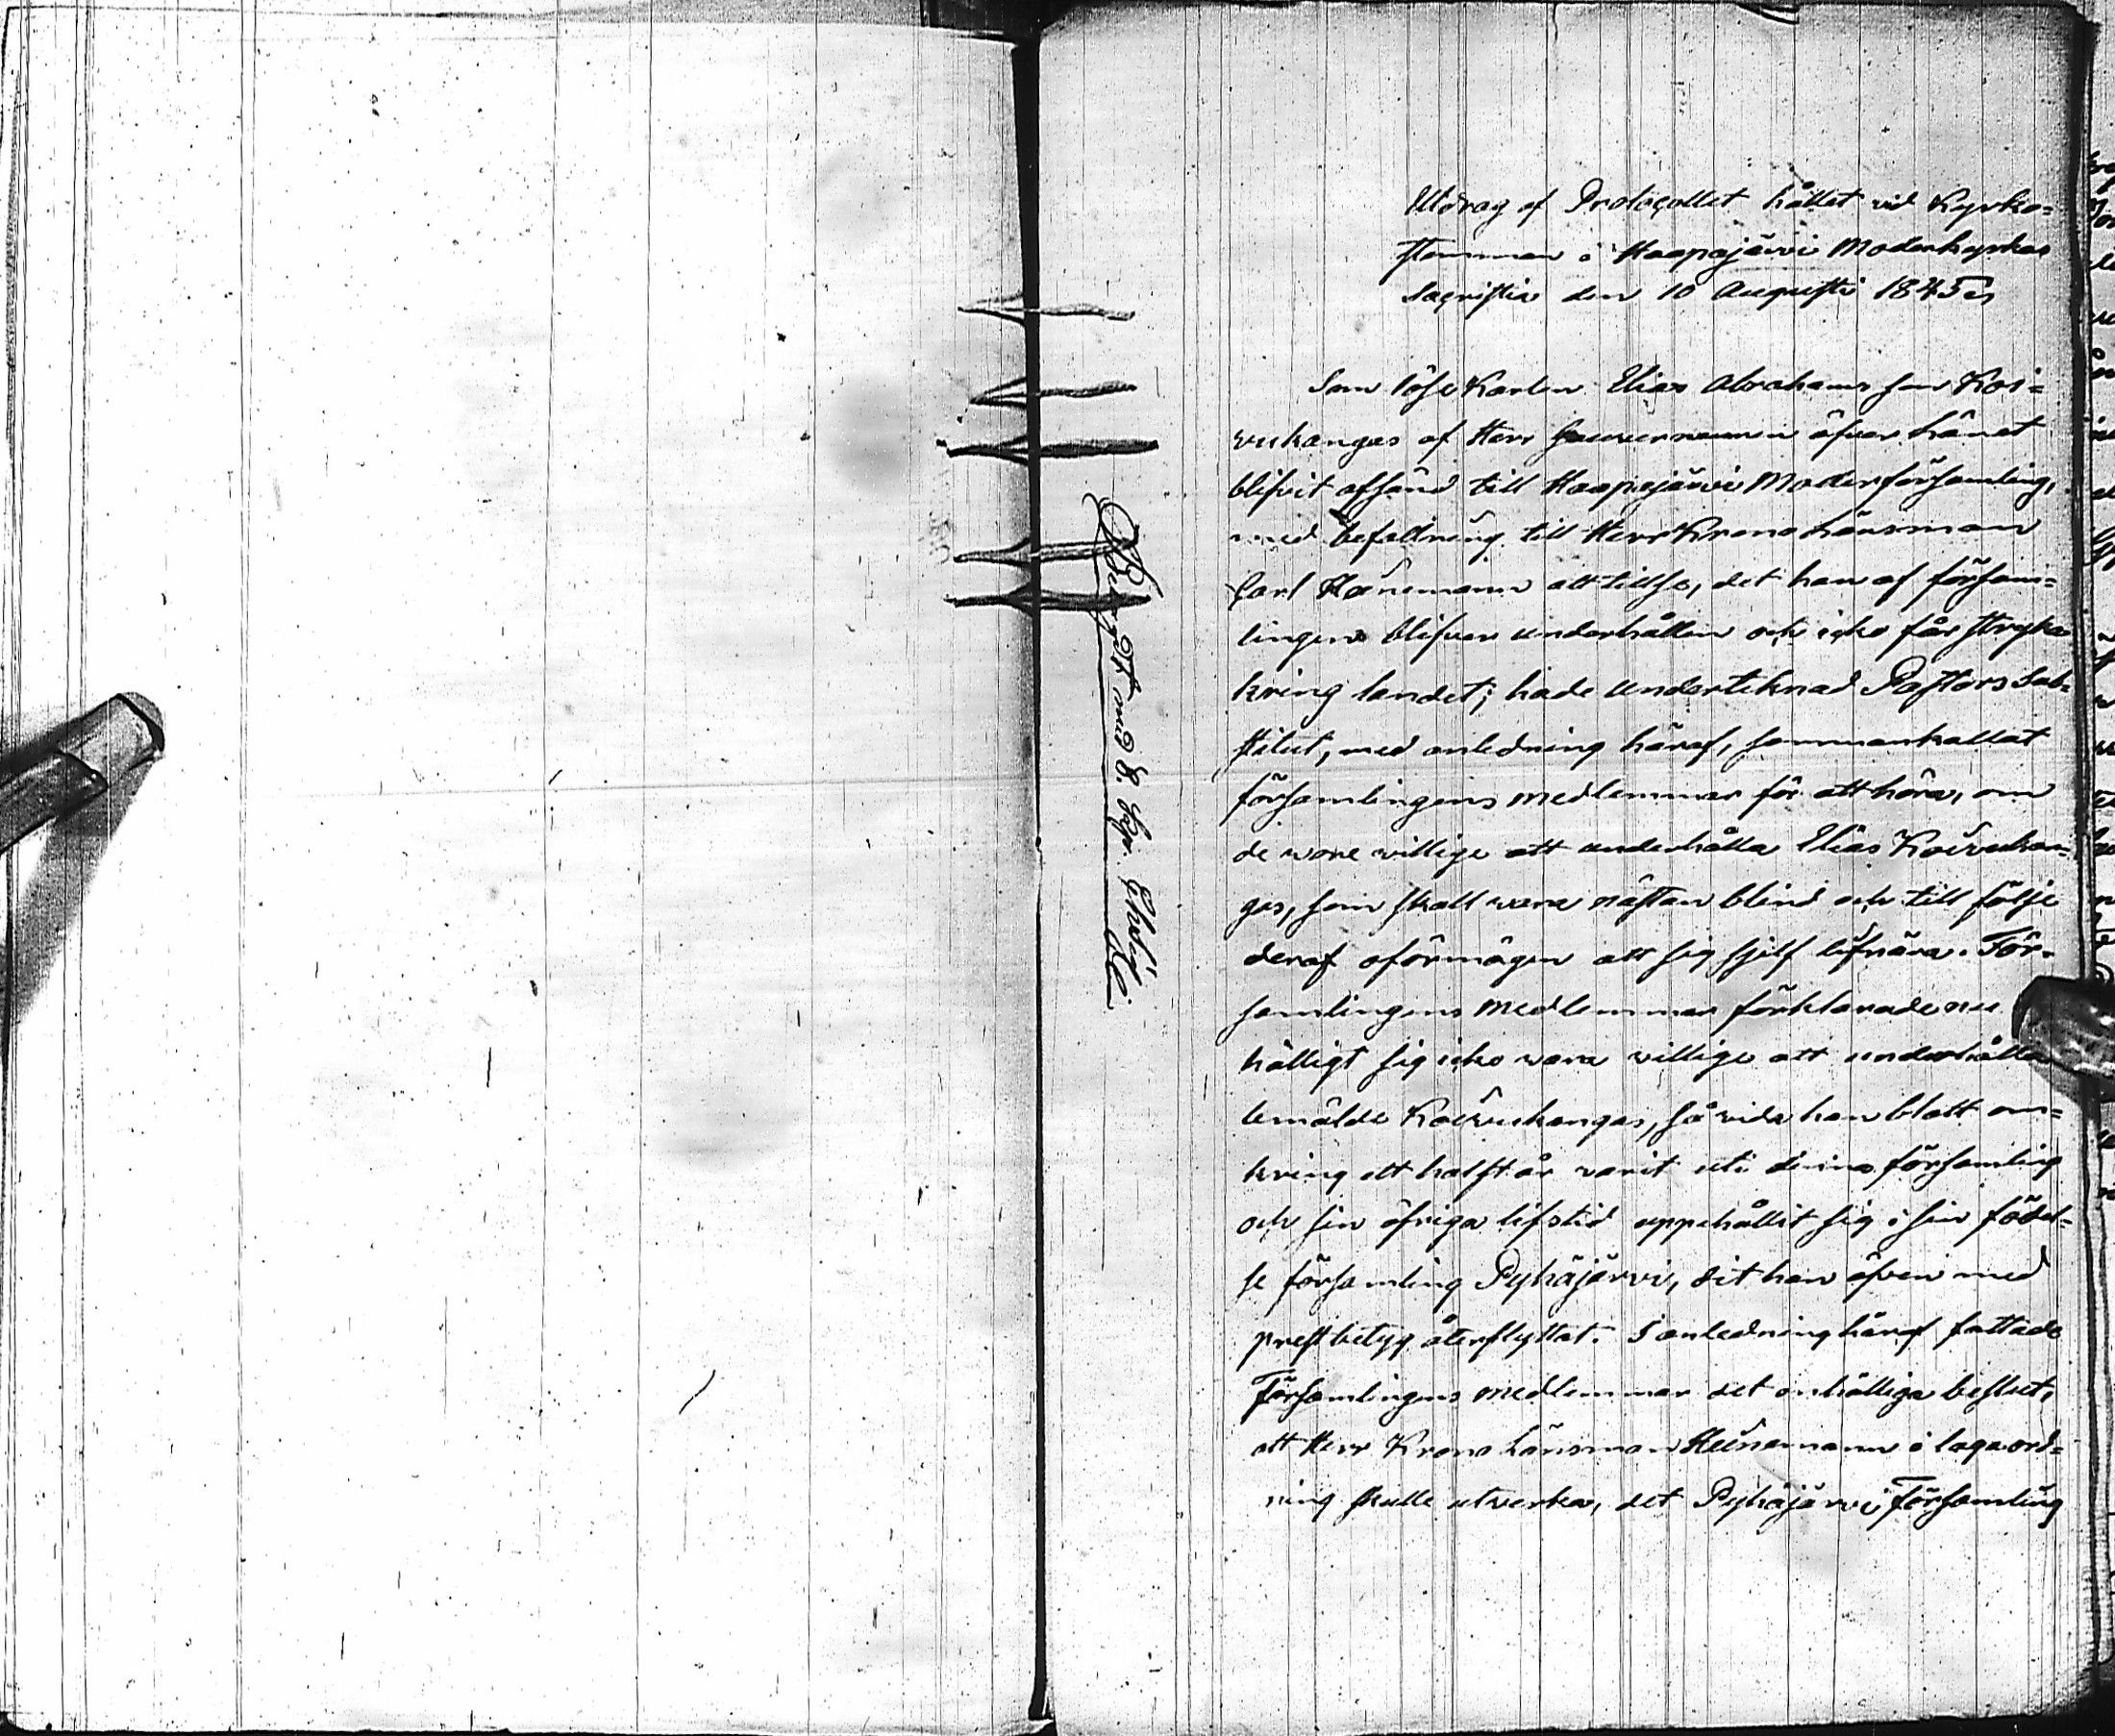 Utdrag af Protocollet hållet vid Kyrko=
stämman i Haapajärvi Moderkyrkas
Sacristia den 10 Augusti 1845
Som löse Karlen Elias Abrahamsson Koi=
vukangas af Herr Gouverneuren öfver länet
blifvit afsänd till Haapajärvi Moderförsamling,
med befallning till Herr Krono Länsman
Carl Heinemann att tillse, det han af försam=
lingen blifver underhållen och icke får stryka
kring landet; hade undertecknad Pastors Sub=
stitut, med anledning häraf, sammankallat
församlingens medlemmar för att höra, om
de wore willige att underhålla Elias Koivukan=
gas, som skall wara nästan blind och till följe
deraf oförmögen att sig sjelf lifnära. För=
samlingens medlemmar förklarade en=
hälligt sig icke wara willige att underhålla
bemälde Koivukangas, så vida han blott om=
kring ett halft år varit uti denna församling
och sin öfriga lifstid uppehållit sig i sin födel=
se församling Pyhäjärvi, dit han äfven med
prestbetyg återflyttat. I anledning häraf fattade
Församlingens medlemmar det enhälliga beslut,
att Herr Krono Länsman Heinemann i laga ord=
ning skulle utverka, det Pyhäjärvi Församling
med 8. kop.